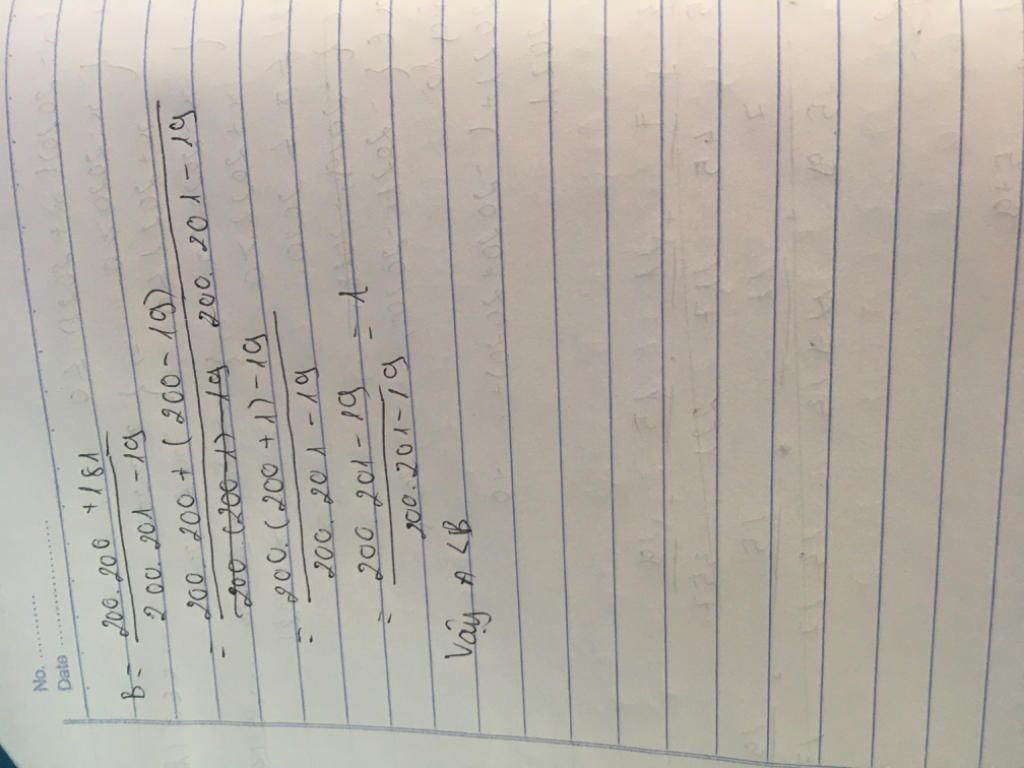 No. ............
Date ......................
B = 200.200 + 181
200. 201 - 19
= 200. 200 + (200 - 19)
200 (200-1) - 19 200. 201 - 19
= 200. (200 + 1) - 19
200. 201 - 19
= 200. 201 - 19 = 1
200. 201 - 19
Vậy A < B